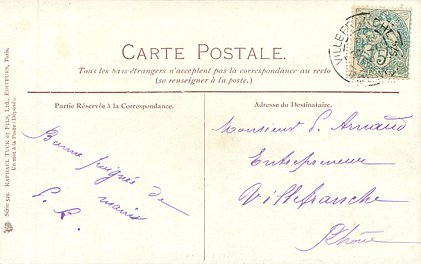 CARTE POSTALE.
Tous les pays étrangers n'acceptent pas la correspondance au recto
(se renseigner à la poste.)
Partie Réservée à la Correspondance.
Bonne poignée de
mains
Adresse du Destinataire.
Monsieur P. Arnaud
Entrepreneur
Villefranche
Rhône
RAPHAEL TUCK ET FILS, LTD., EDITEURS, Paris.
Un mot à la Poste (Déposé).